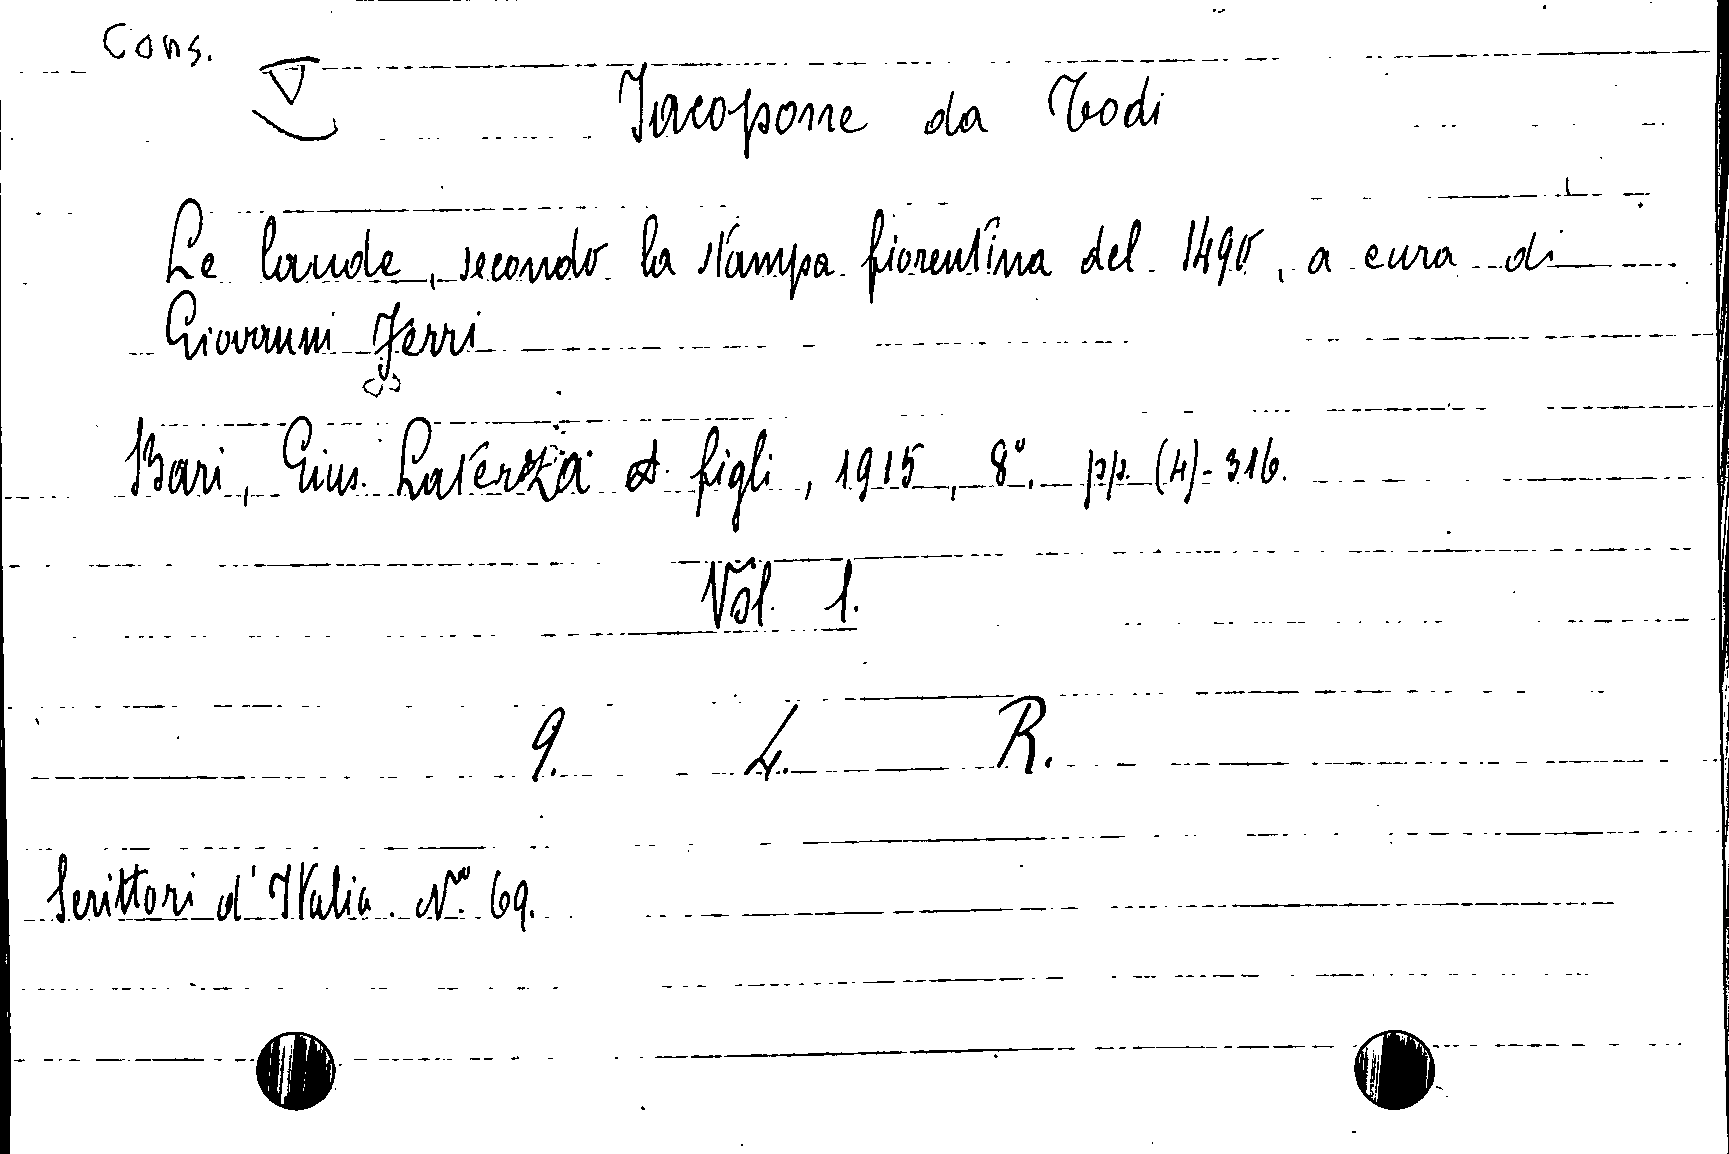 Cons.
Jacopone da Todi
Le laude, secondo la stampa fiorentina del 1490, a cura di
Giovanni Ferri
Bari, Gius. Laterza & figli, 1915, 8°. pp. (4)-316.
Vol. 1.
9. 4. R.
Scrittori d'Italia. N° 69.